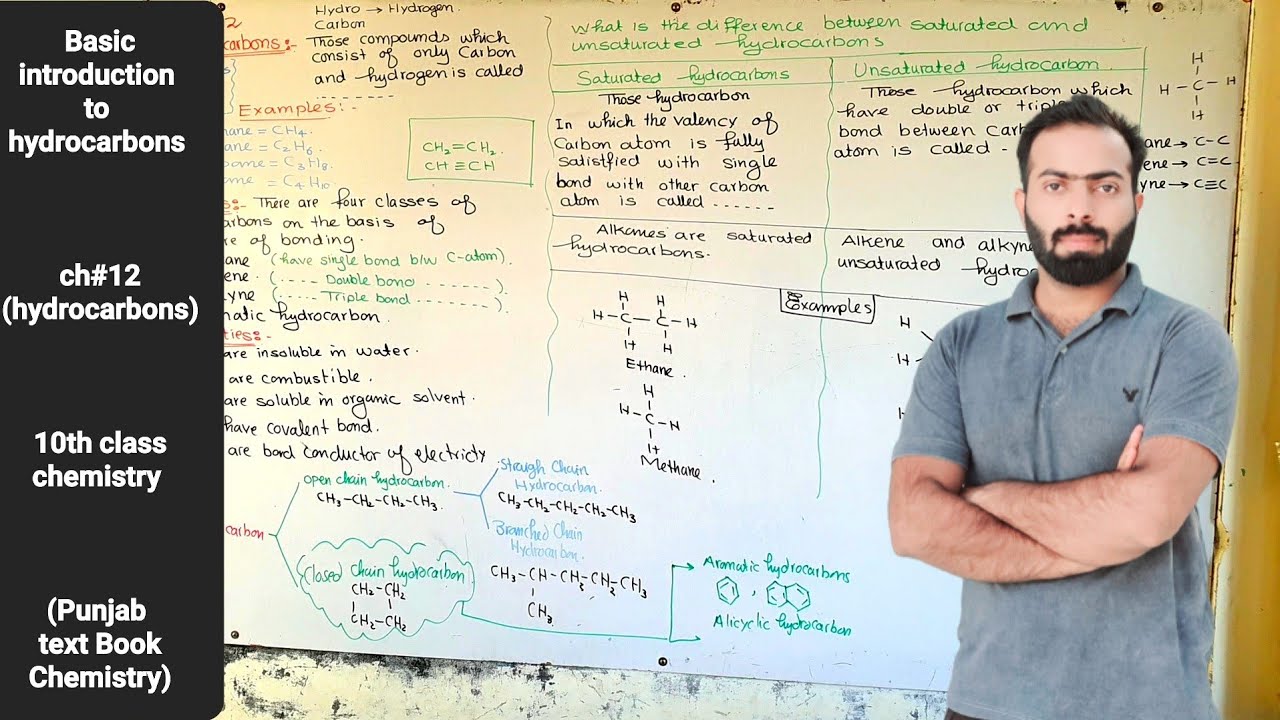 Basic
introduction
to
hydrocarbons
ch#12
(hydrocarbons)
10th class
chemistry
(Punjab
text Book
Chemistry)
2
Hydro → Hydrogen.
Carbon
carbons:-
Those compounds which
consist of only Carbon
and hydrogen is called
Examples:-
ane = CH4.
ane = C2H6.
ane = C3H8.
ane = C4H10
CH2=CH2.
CH≡CH
There are four classes of
arbons on the basis of
re of bonding.
ane (have single bond b/w C-atom).
ene. (.... Double bond .......).
yne (.... Triple bond .......).
matic hydrocarbon.
ties:-
are insoluble in water.
are combustible.
are soluble in organic solvent.
have covalent bond.
are bad conductor of electricty
carbon
Open chain hydrocarbon.
CH3-CH2-CH2-CH3.
Closed chain hydrocarbon
CH2-CH2
CH2-CH2
Straigh Chain
Hydrocarbon.
CH3-CH2-CH2-CH2-CH3
Branched Chain
Hydrocarbon.
CH3-CH-CH2-CH2-CH3
CH3.
Aromatic hydrocarbons
Alicyclic hydrocarbon
What is the difference between saturated and
unsaturated hydrocarbons
Saturated hydrocarbons
Those hydrocarbon
In which the valency of
Carbon atom is fully
satistfied with single
bond with other carbon
atom is called ------
Alkanes are saturated
hydrocarbons.
Unsaturated hydrocarbon.
These hydrocarbon which
have double or triple
bond between Car
atom is called -
Alkene and alkyne
unsaturated hydro
Examples
H H
H-C-C-H
H H
Ethane.
H
H-C-H
H
Methane.
H
H
H
H
H-C-H
H
ane → C-C
ene → C=C
yne → C≡C